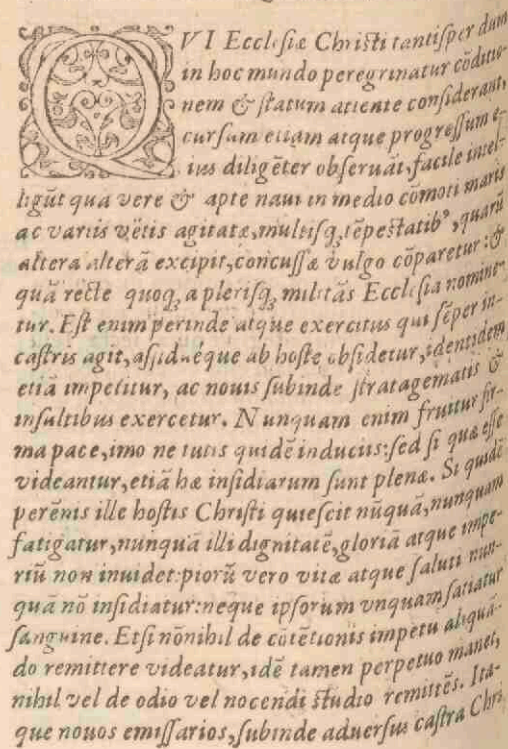 QVI Ecclesiæ Christi tantisper dum
in hoc mundo peregrinatur cōditio-
nem & statum attente considerant,
cursum etiam atque progressum e-
ius diligēter obseruāt, facile intel-
ligūt quā vere & apte naui in medio cōmoti maris
ac variis vētis agitatæ, multisq; tēpestatibꝰ, quarū
altera alterā excipit, concussæ vulgo cōparetur: &
quā recte quoq; a plerisq; militās Ecclesia nomine-
tur. Est enim perinde atque exercitus qui sēper in
castris agit, assidueque ab hoste obsidetur, identidem
etiā impetitur, ac nouis subinde stratagematis &
insultibus exercetur. Nunquam enim fruitur fir-
ma pace, imo ne tutis quidē induciis: sed si quæ esse
videantur, etiā hæ insidiarum sunt plenæ. Si quidē
perēnis ille hostis Christi quiescit nūquā, nunquam
fatigatur, nunquā illi dignitatē, gloriā atque impe-
riū non inuidet: piorū vero vitæ atque saluti nun-
quā nō insidiatur: neque ipsorum vnquam satiatur
sanguine. Etsi nōnihil de cōtētionis impetu aliquā-
do remittere videatur, idē tamen perpetuo manet,
nihil vel de odio vel nocendi studio remittēs. Ita-
que nouos emissarios, subinde aduersus castra Chri